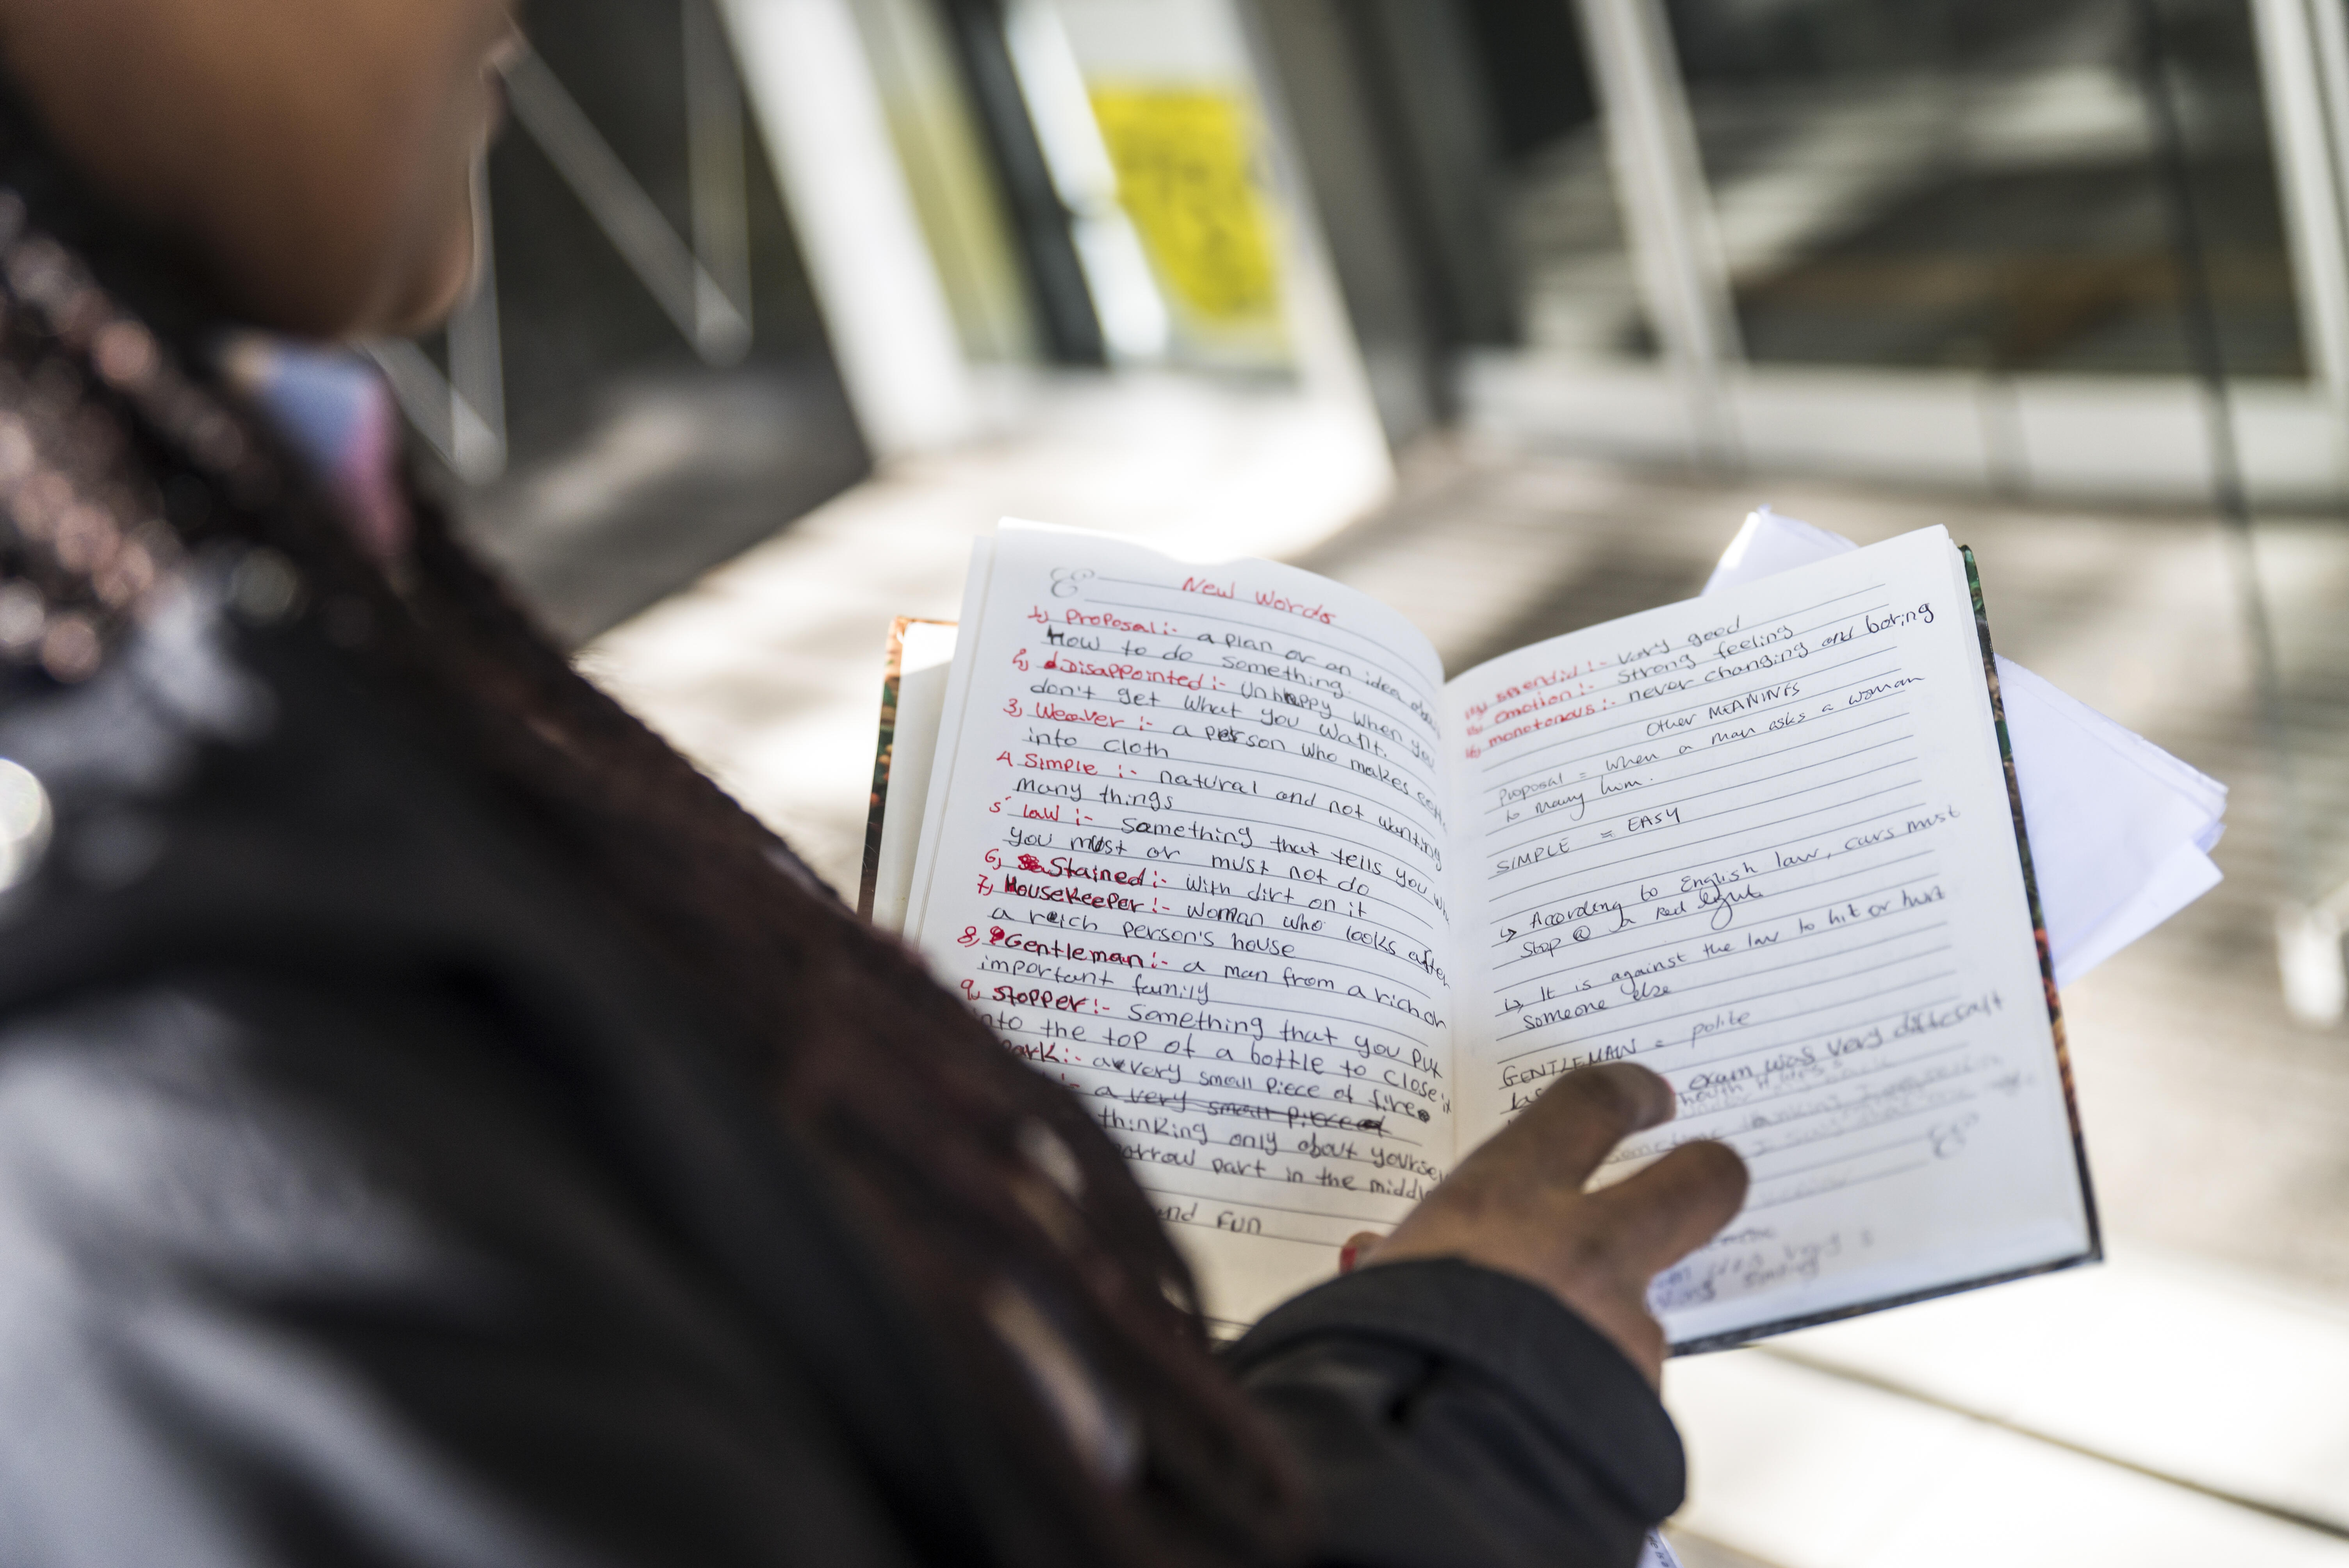 New Words
1, Proposal :- a plan or an idea
How to do something.
2, Disappointed :- Unhappy when you
don't get what you want.
3, Weaver :- a person who makes
into cloth
4 Simple :- natural and not wanting
many things
5 law :- Something that tells you
you must or must not do
6, Stained :- with dirt on it
7, Housekeeper :- woman who looks after
a reich person's house
8, Gentleman :- a man from a rich or
important family
9, Stopper :- Something that you put
into the top of a bottle to close it
ark :- a very small piece of fire
:- a very small piece of
thinking only about yourself
arrow part in the middle
and Fun
splendid :- very good
emotion :- Strong feeling
monotonous :- never changing and boring
Other MEANINGS
Proposal = when a man asks a woman
to marry him.
SIMPLE = EASY
↳ According to English law, cars must
Stop @ a red light
↳ It is against the law to hit or hurt
someone else
GENTLEMAN = polite
exam was very difficult